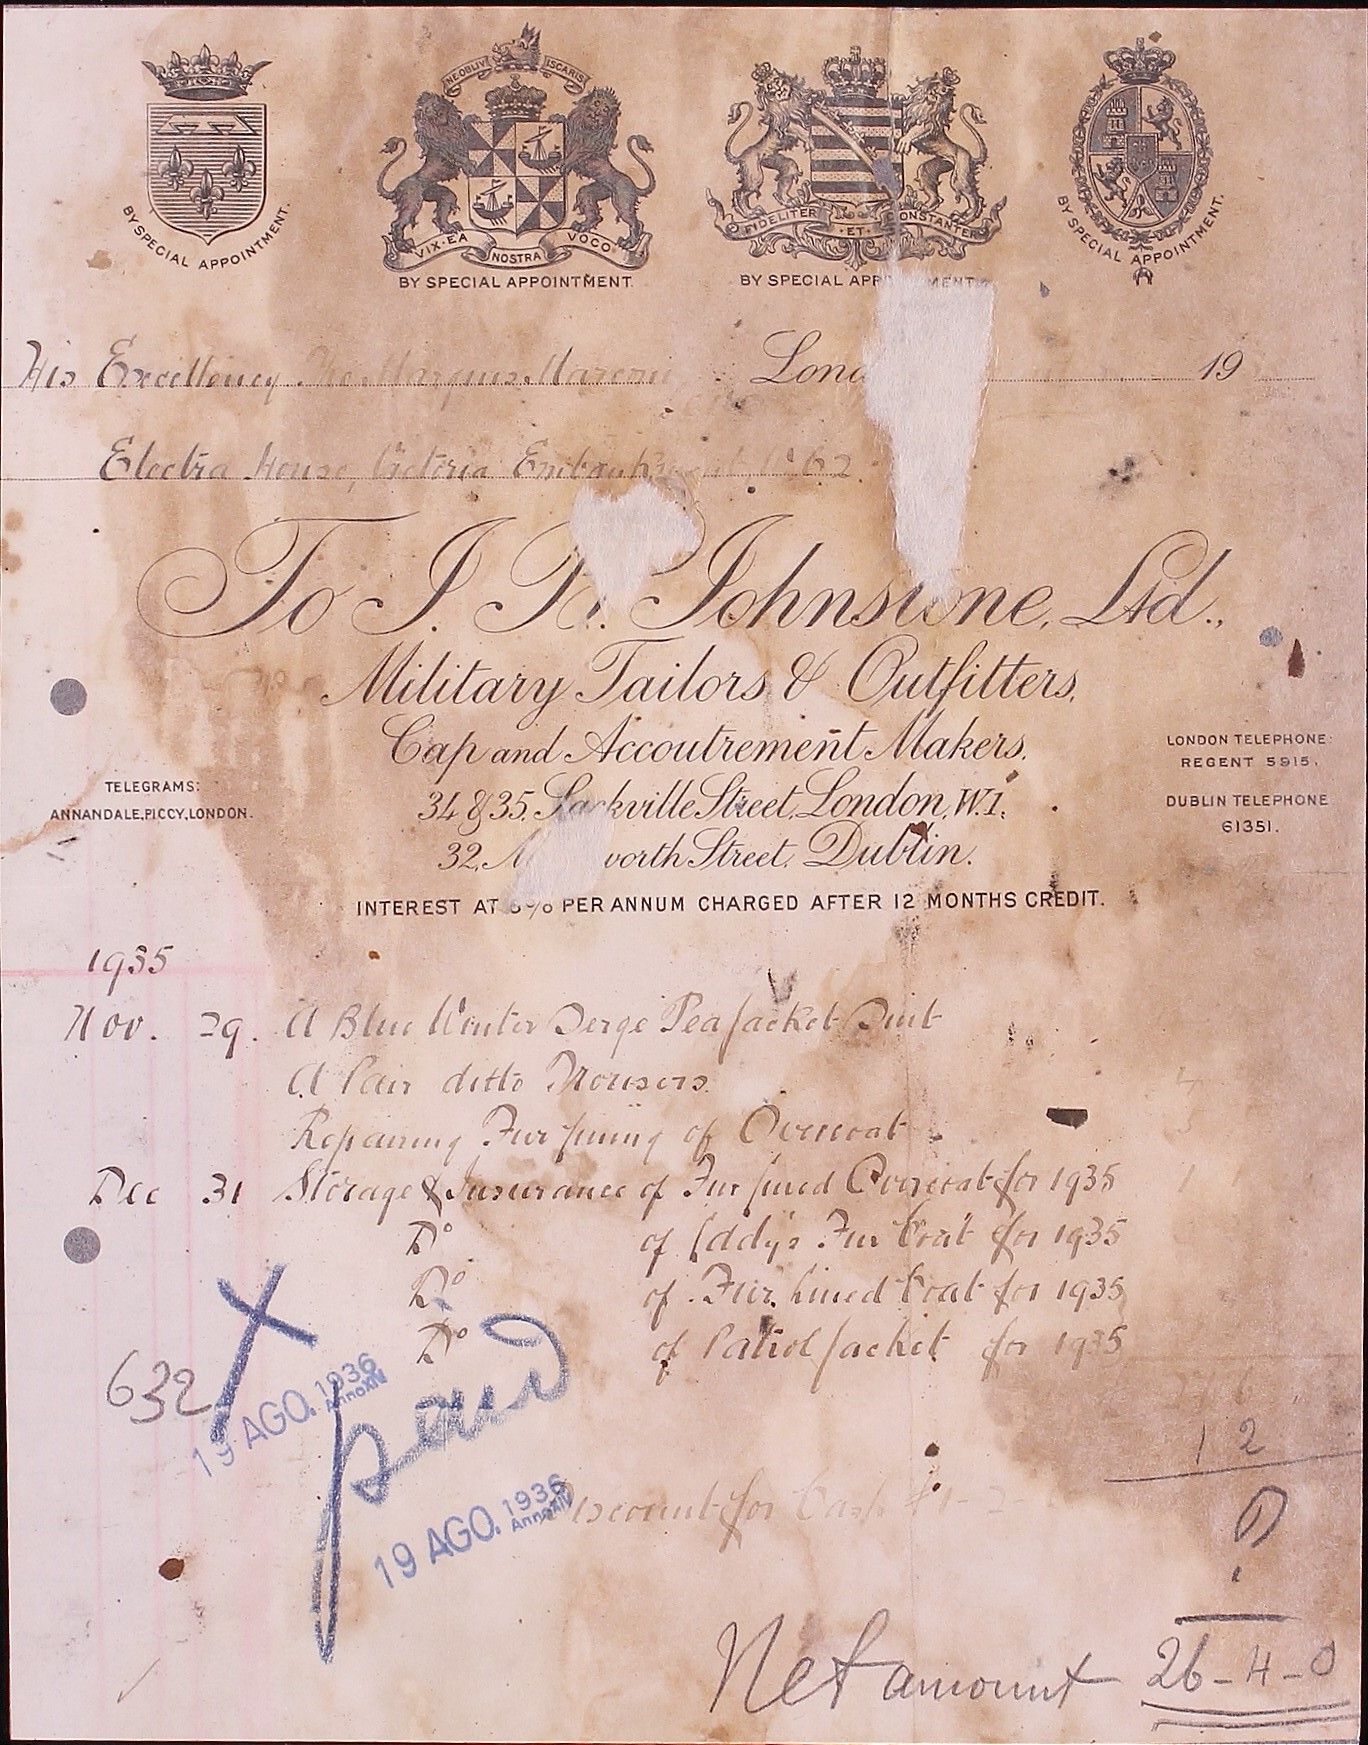 NE OBLIVISCARIS
VIX·EA NOSTRA VOCO
FIDELITER ·ET· CONSTANTER
BY SPECIAL APPOINTMENT.
BY SPECIAL APPOINTMENT.
BY SPECIAL APP MENT
BY SPECIAL APPOINTMENT.
His Excellency The Marquis Marconi Lond 19
Electra House, Victoria Embankment
To J. Johnstone, Ltd.,
Military Tailors & Outfitters,
Cap and Accoutrement Makers.
LONDON TELEPHONE:
REGENT 5915.
TELEGRAMS:
ANNANDALE, PICCY, LONDON.
34 & 35, Sackville Street, London, W.1.
DUBLIN TELEPHONE
61351.
32, M worth Street, Dublin.
INTEREST AT 5% PER ANNUM CHARGED AFTER 12 MONTHS CREDIT.
1935
Nov. 29. A Blue Winter Serge Pea Jacket Suit
A Pair ditto Trousers
Repairing Fur lining of Overcoat
Dec 31 Storage & Insurance of Fur lined Overcoat for 1935
Do of Fur Coat for 1935
Do of Fur Lined Coat for 1935
Do of Patrol Jacket for 1935
632 X
19 AGO. 1936
Anno XIV
12
Discount for Cash
19 AGO. 1936
Anno XIV
?
Net amount 26-4-0